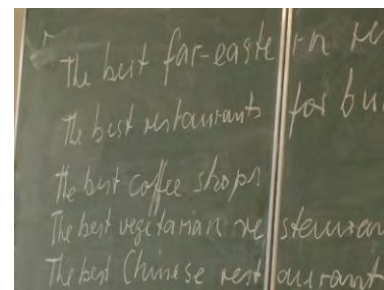 The best far-eastern re
The best restaurants for bu
the best coffee shops
The best vegetarian restauran
The best Chinese restaurant